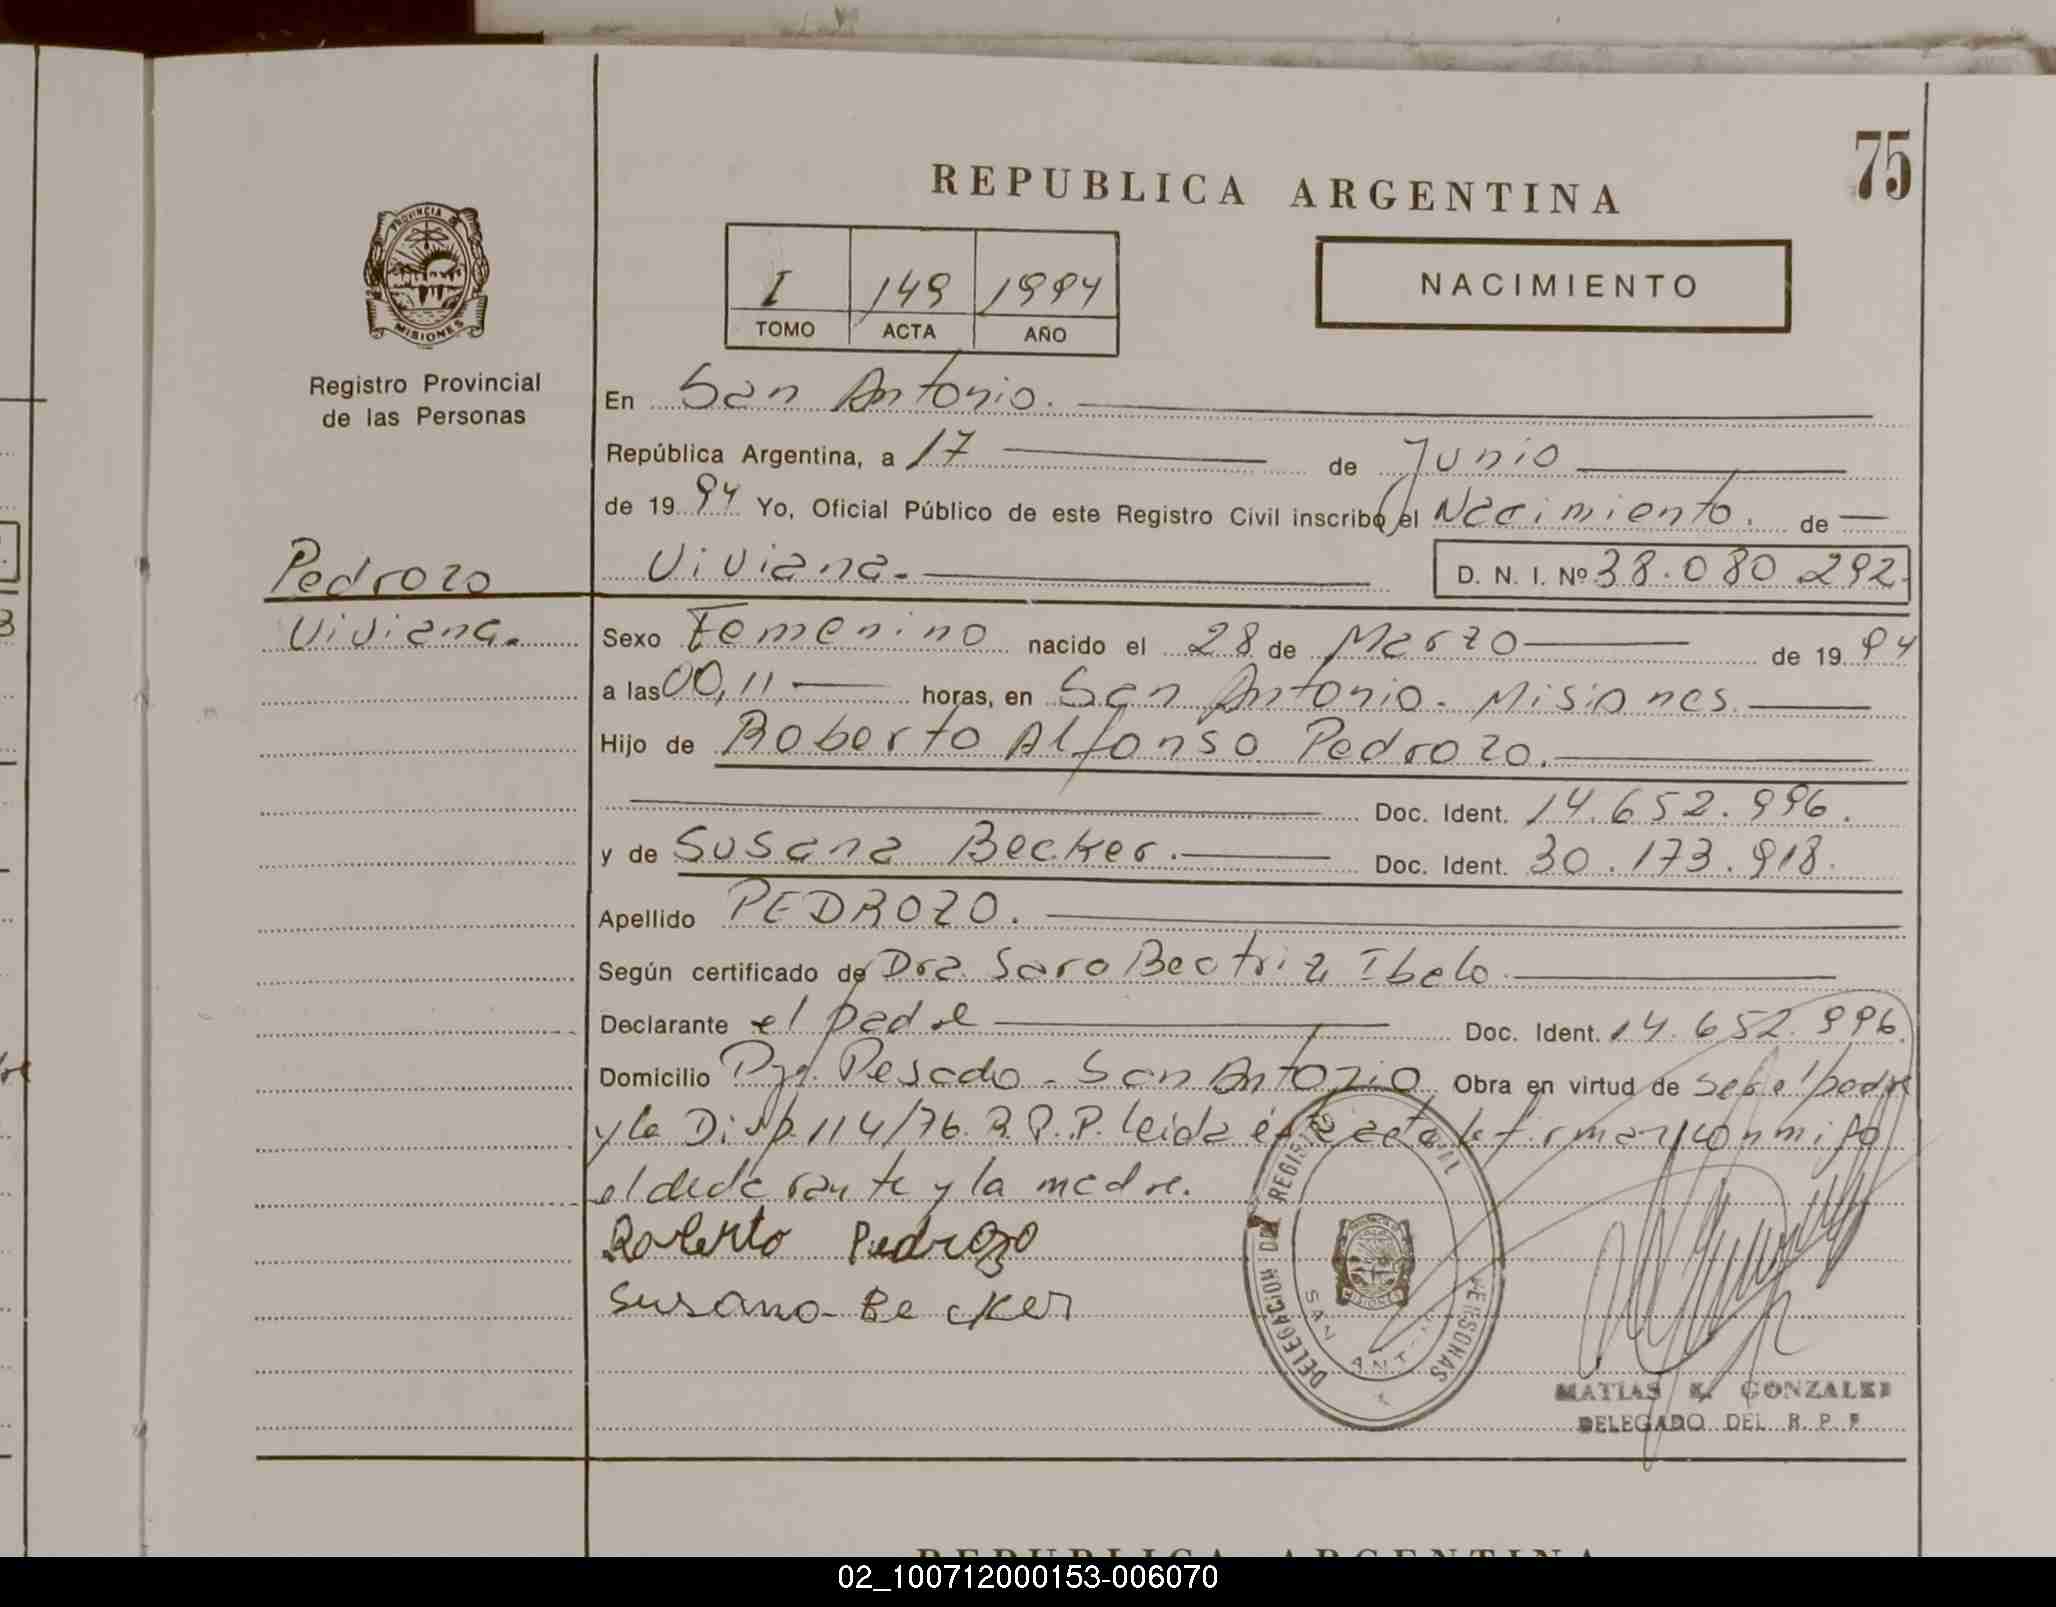 75
REPUBLICA ARGENTINA
NACIMIENTO
I 149 1994
TOMO ACTA AÑO
PROVINCIA DE
MISIONES
Registro Provincial
de las Personas
Pedrozo
Viviana.
En San Antonio.
República Argentina, a 17 de Junio
de 1994 Yo, Oficial Público de este Registro Civil inscribo el Nacimiento. de
Viviana. D. N. I. Nº 38.080 292.
Sexo Femenino nacido el 28 de Marzo de 1994
a las 00,11 horas, en San Antonio. Misiones.
Hijo de Roberto Alfonso Pedrozo.
Doc. Ident. 14.652.996.
y de Susana Becker. Doc. Ident. 30.173.918.
Apellido PEDROZO.
Según certificado de Dra. Sara Beatriz Ibelo.
Declarante el padre Doc. Ident. 14.652.996.
Domicilio Pje. Pesado - San Antonio. Obra en virtud de ser el padre
y la Disp. 114/76. R.P.P. leida ésta acta la firman conmigo
el declarante y la madre.
Roberto Pedrozo
Susana Becker
DELEGACION DEL REGISTRO PERSONAS
SAN ANT
MISIONES
MATIAS GONZALEZ
DELEGADO DEL R. P. P.
REPUBLICA ARGENTINA
02_100712000153-006070